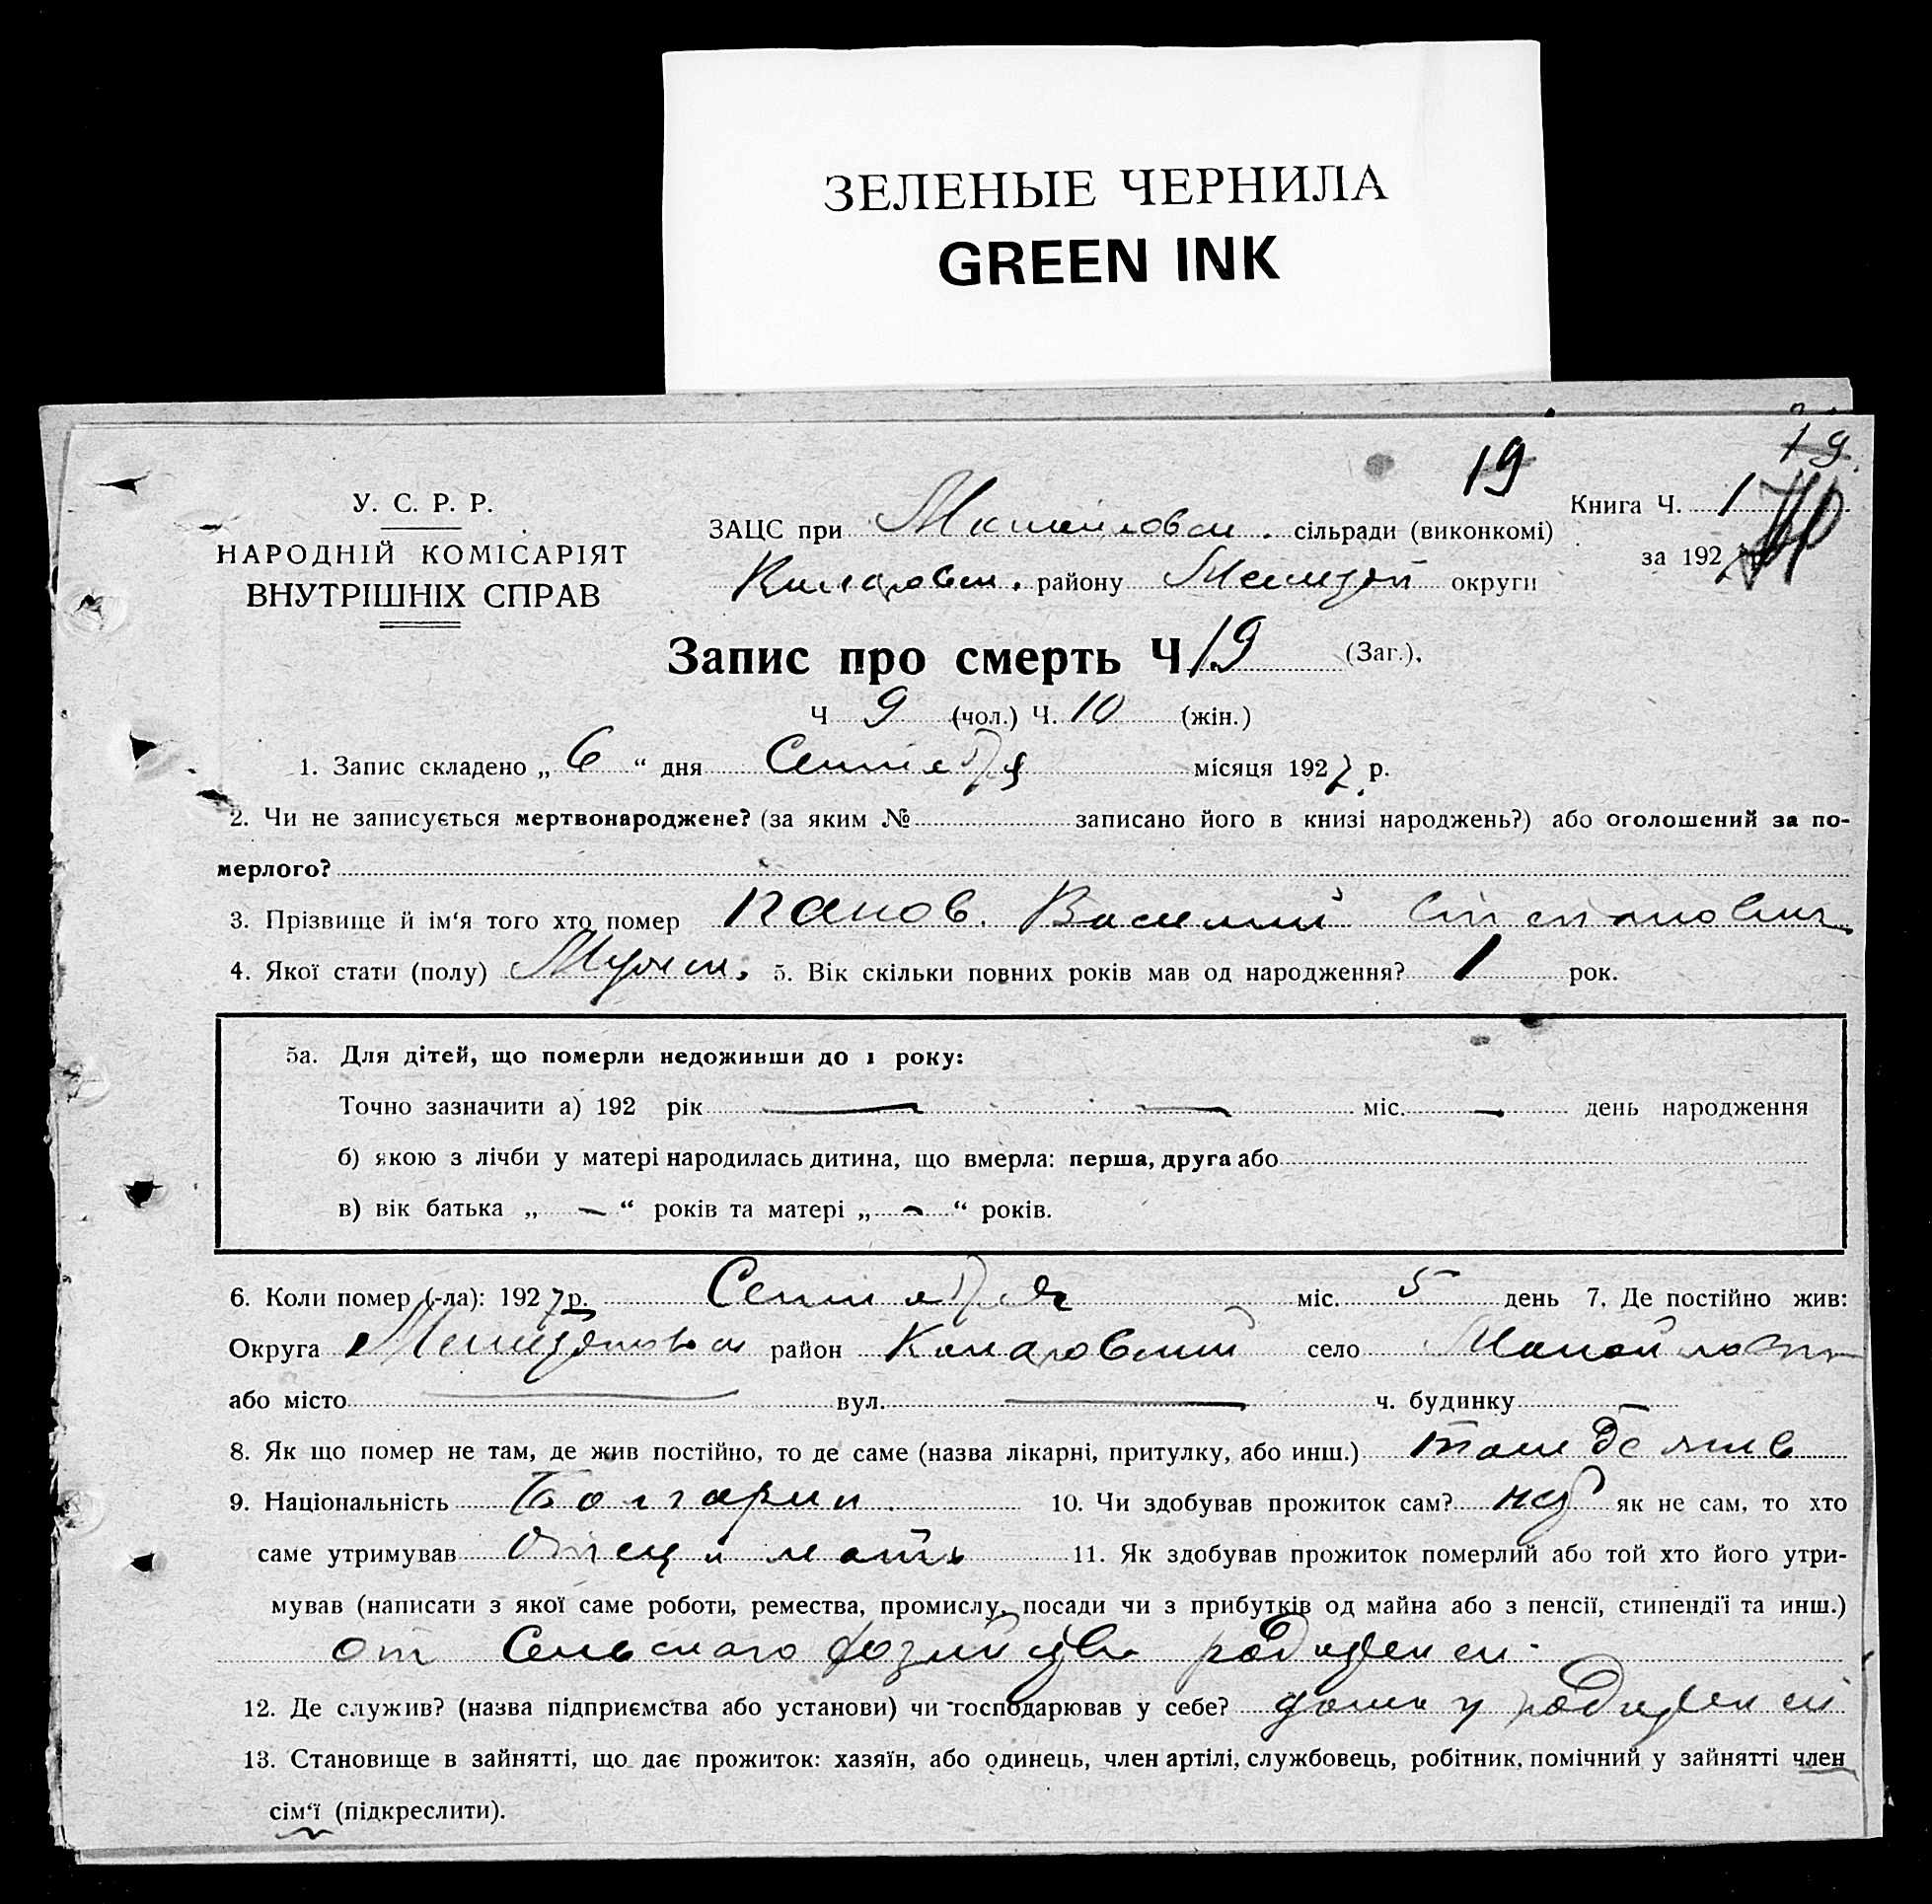 ЗЕЛЕНЫЕ ЧЕРНИЛА
GREEN INK
19
19
У. С. Р. Р.
НАРОДНІЙ КОМІСАРІЯТ
ВНУТРІШНІХ СПРАВ
Книга Ч. 1
за 192
ЗАЦС при сільради (виконкомі)
району округи
Запис про смерть Ч 19 (Заг.),
Ч 9 (чол.) Ч. 10 (жін.)
1. Запис складено „ 6 “ дня Сентября місяця 1927 р.
2. Чи не записується мертвонароджене? (за яким № записано його в книзі народжень?) або оголошений за по-
мерлого?
3. Прізвище й ім‘я того хто помер Панов. Василий Степанович
4. Якої стати (полу) Мужск. 5. Вік скільки повних років мав од народження? 1 рок.
5а. Для дітей, що померли недоживши до 1 року:
Точно зазначити а) 192 рік міс. день народження
б) якою з лічби у матері народилась дитина, що вмерла: перша, друга або
в) вік батька „ — “ років та матері „ — “ років.
6. Коли помер (-ла): 1927 р. Сентября міс. 5 день 7. Де постійно жив:
Округа район село
або місто — вул. — ч. будинку —
8. Як що помер не там, де жив постійно, то де саме (назва лікарні, притулку, або инш.) там де жив
9. Національність Болгарин 10. Чи здобував прожиток сам? як не сам, то хто
саме утримував Отец и мать 11. Як здобував прожиток померлий або той хто його утри-
мував (написати з якої саме роботи, ремества, промислу, посади чи з прибутків од майна або з пенсії, стипендії та инш.)
от Сельского хозяйства
12. Де служив? (назва підприємства або установи) чи господарював у себе? дома у родителей
13. Становище в зайнятті, що дає прожиток: хазяїн, або одинець, член артілі, службовець, робітник, помічний у зайнятті член
сім‘ї (підкреслити).